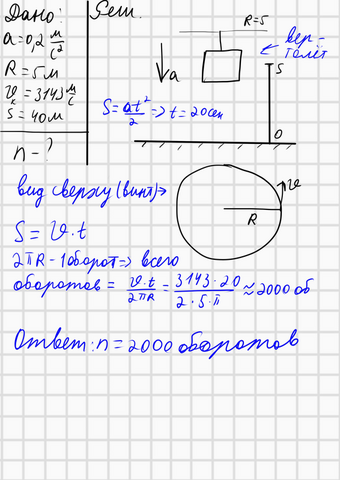 Дано:
a = 0,2 м/с²
R = 5 м
υк = 3143 м/с
S = 40 м
n - ?
Реш.
R=5
вер-
толёт
a
S
S = at²/2 => t = 20 сек
0
вид сверху (винт)→
υ
R
S = υ · t
2πR - 1 оборот => всего
оборотов = υ·t/2πR = 3143·20/2·5·π ≈ 2000 об
Ответ: n = 2000 оборотов